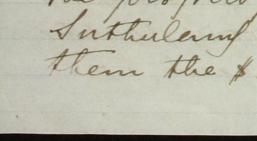 Sutherland
them the $